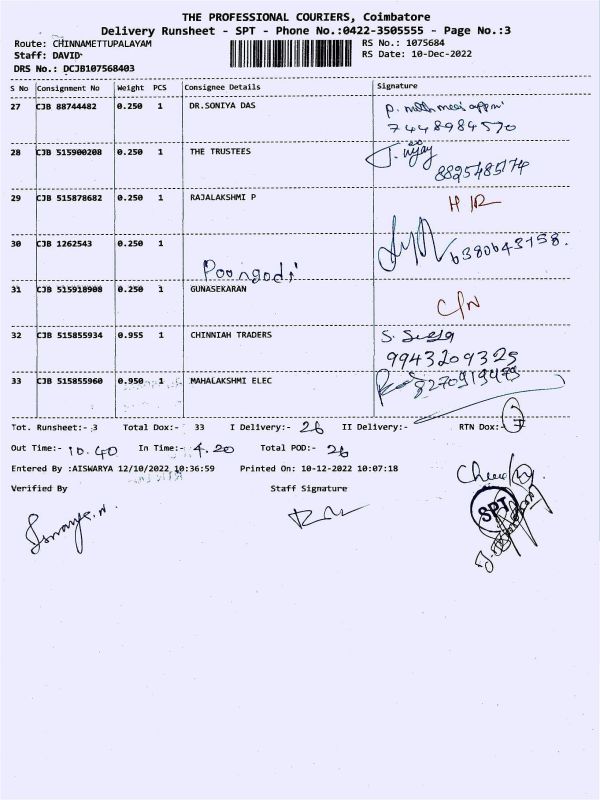 THE PROFESSIONAL COURIERS, Coimbatore
Delivery Runsheet - SPT - Phone No.:0422-3505555 - Page No.:3
Route: CHINNAMETTUPALAYAM RS No.: 1075684
Staff: DAVID RS Date: 10-Dec-2022
DRS No.: DCJB107568403
S No Consignment No Weight PCS Consignee Details Signature
27 CJB 88744482 0.250 1 DR.SONIYA DAS
7448984570
28 CJB 515900208 0.250 1 THE TRUSTEES J. vijay
8825485174
29 CJB 515878682 0.250 1 RAJALAKSHMI P H/R
30 CJB 1262543 0.250 1 6380643158.
Poongodi
31 CJB 515918908 0.250 1 GUNASEKARAN C/N
32 CJB 515855934 0.955 1 CHINNIAH TRADERS
9943209325
33 CJB 515855960 0.950 1 MAHALAKSHMI ELEC
Tot. Runsheet:- 3 Total Dox:- 33 I Delivery:- 26 II Delivery:- RTN Dox:- 7
Out Time:- 10.40 In Time:- 4.20 Total POD:- 26
Entered By :AISWARYA 12/10/2022 10:36:59 Printed On: 10-12-2022 10:07:18
Verified By Staff Signature
SPT